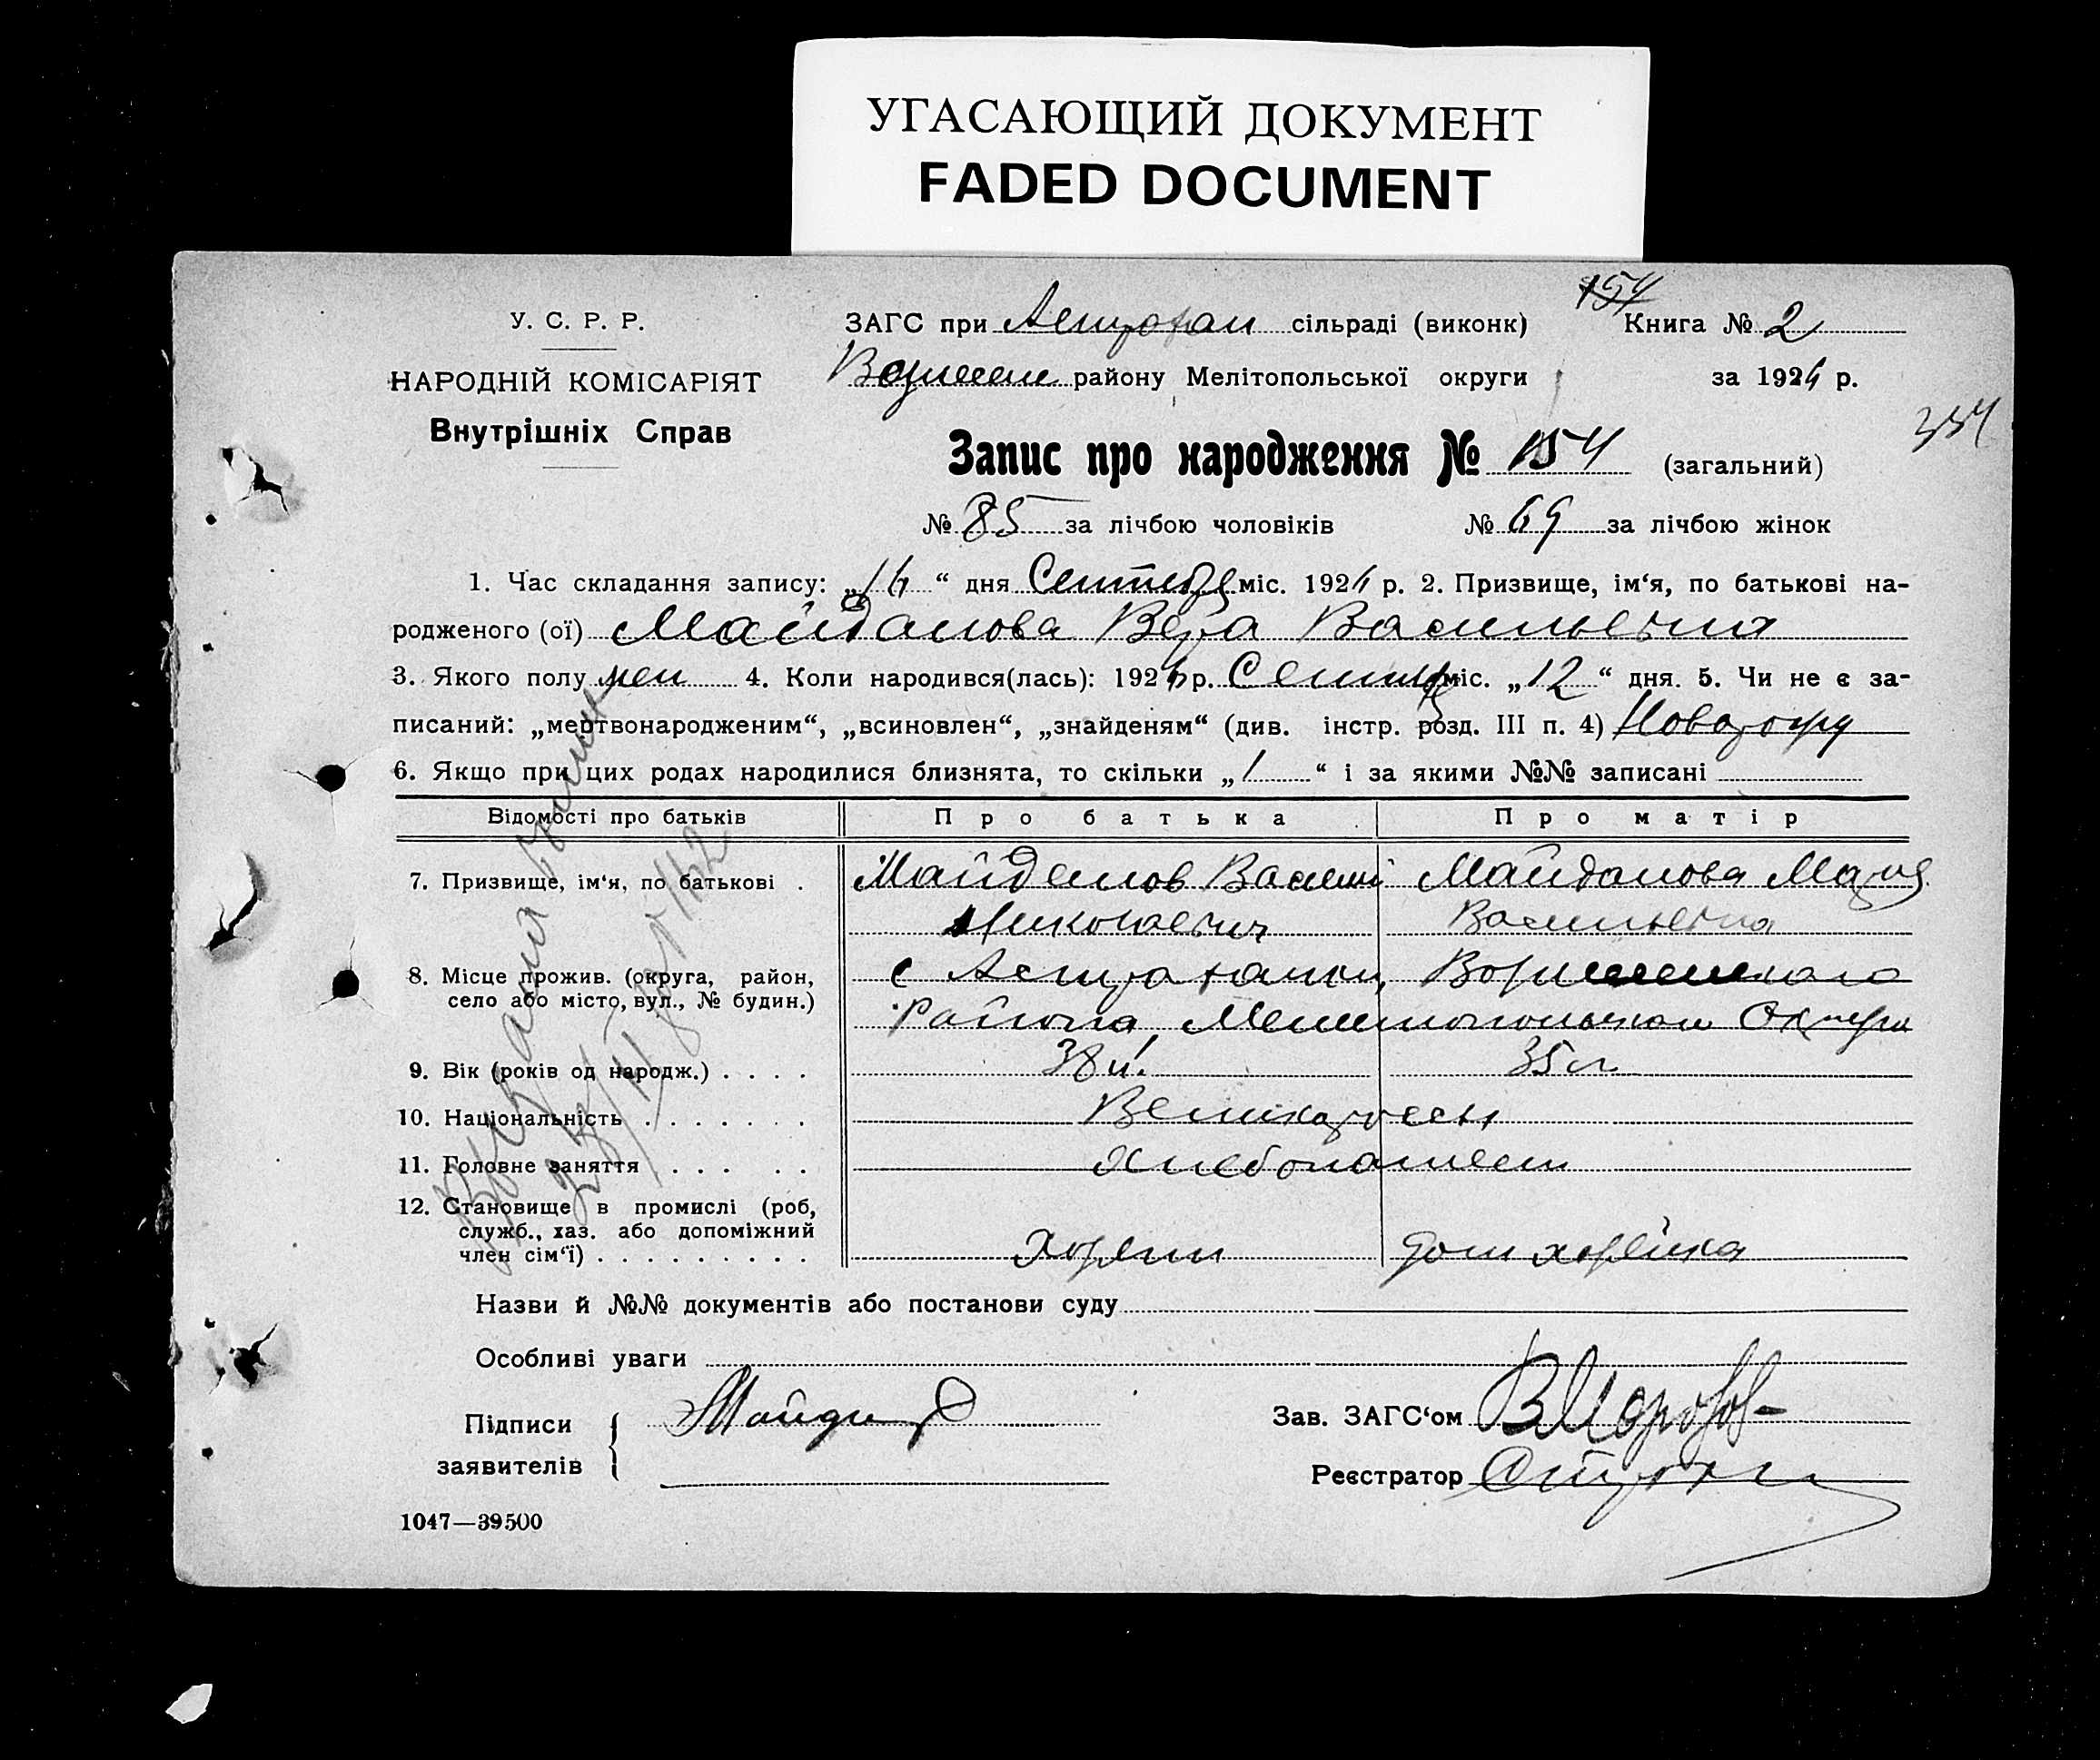 УГАСАЮЩИЙ ДОКУМЕНТ
FADED DOCUMENT
154
У. С. Р. Р.
НАРОДНІЙ КОМІСАРІЯТ
Внутрішніх Справ
ЗАГС при Астрахан сільраді (виконк) Книга № 2
району Мелітопольської округи за 192 р.
354
Запис про народження № 154 (загальний)
№ 85 за лічбою чоловіків № 69 за лічбою жінок
1. Час складання запису: „ “ дня Сентября міс. 192 р. 2. Призвище, ім‘я, по батькові на-
родженого (ої) Майданова Вера Васильевна
3. Якого полу жен 4. Коли народився(лась): 192 р. Сентябр міс. „12“ дня. 5. Чи не є за-
писаний: „мертвонародженим“, „всиновлен“, „знайденям“ (див. інстр. розд. III п. 4)
6. Якщо при цих родах народилися близнята, то скільки „1“ і за якими №№ записані
Відомості про батьків Про батька Про матір
7. Призвище, ім‘я, по батькові . Майданов Василий Майданова Мария
Николаевич Васильевна
8. Місце прожив. (округа, район, с Астраханки,
село або місто, вул., № будин.) Района, Мелитопольской Округи
9. Вік (років од народж.) . . . . 38 л. 35 л
10. Національність . . . . . . . Великороссы
11. Головне заняття . . . . . Хлебопашест
12. Становище в промислі (роб,
служб., хаз. або допоміжний
член сім‘ї) . . . . . . . . . Хозяин дом хозяйка
Назви й №№ документів або постанови суду
Особливі уваги
Підписи
заявителів
Зав. ЗАГС‘ом ВМорозов
Реєстратор
1047—39500